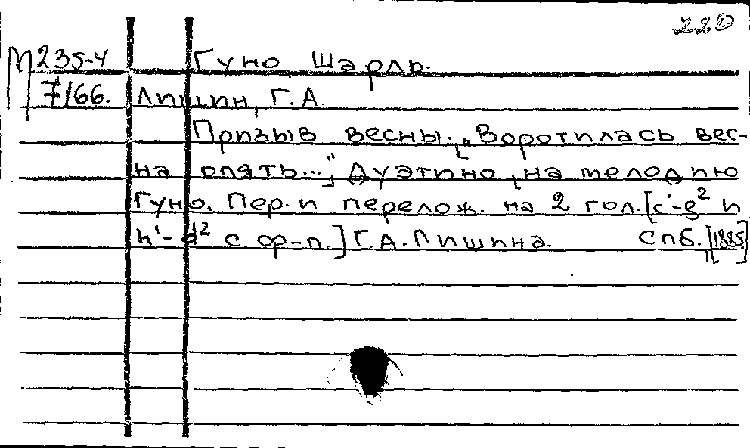 220
М 235-4 Гуно Шарль.
7166. Лишин, Г.А.
Призыв весны. „Воротилась вес-
на опять...“, Дуэтино на мелодию
Гуно. Пер. и перелож. на 2 гол. [c'-g² и
h'-d² с ф-п.] Г.А. Лишина. Спб. [1885]